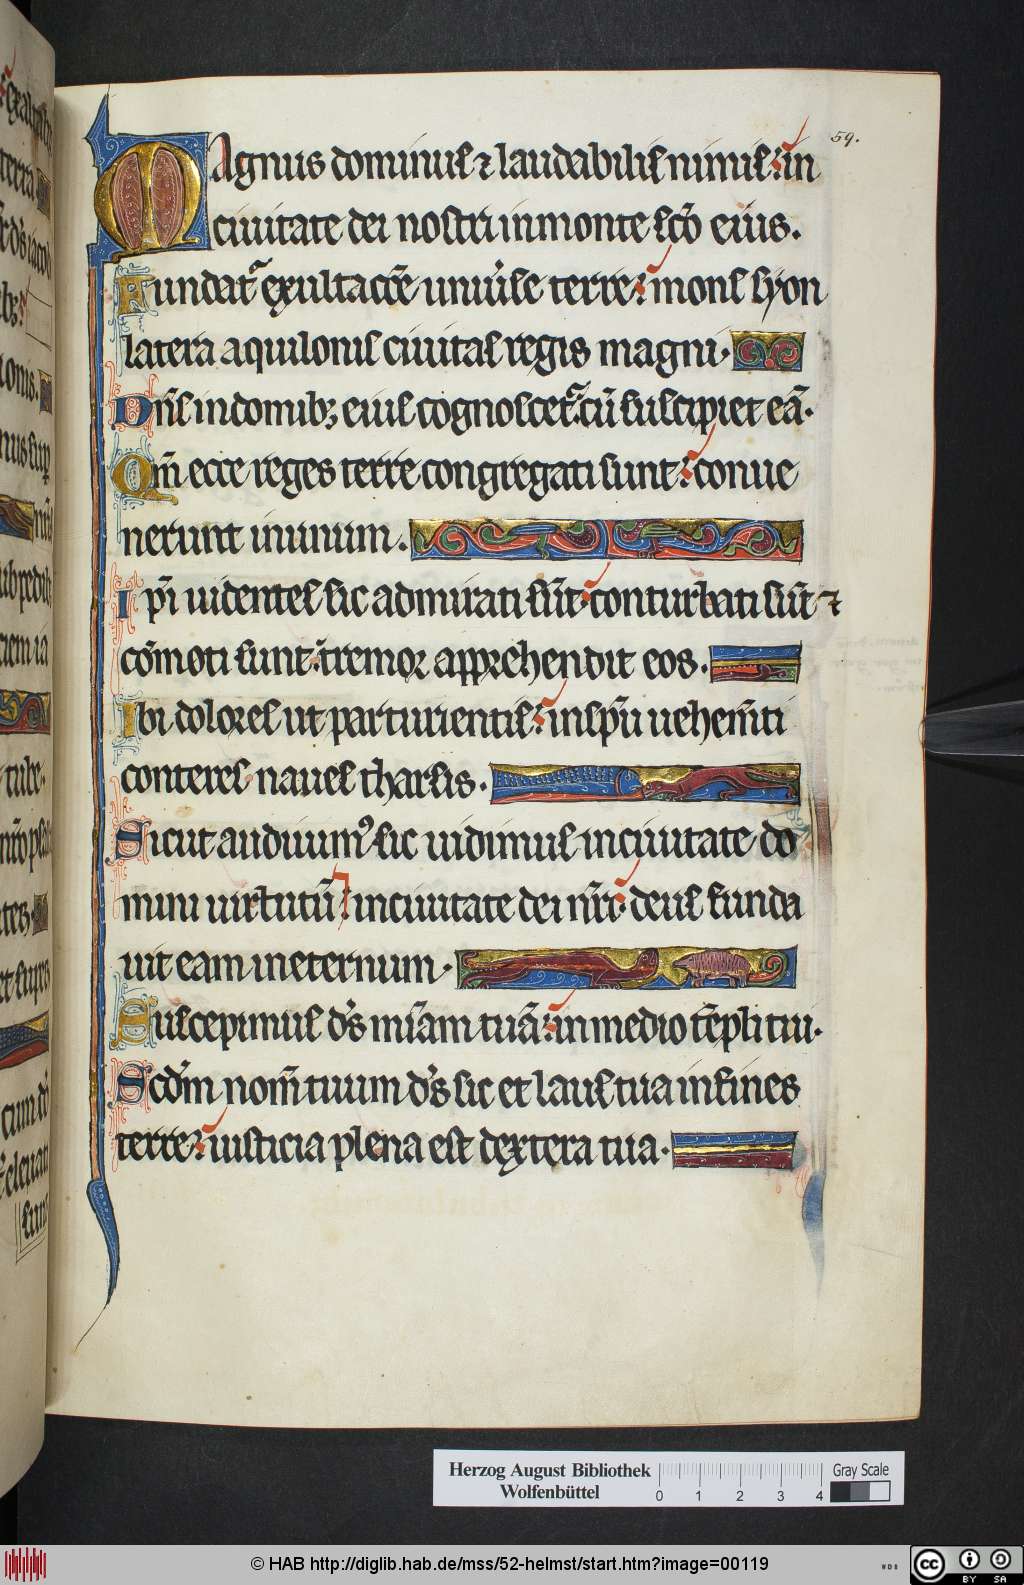 59.
Magnus dominus ⁊ laudabilis nimis: in
ciuitate dei nostri in monte sc̄o eius.
Fundat᷑ exultac̄e uniu̕se terre: mons syon
latera aquilonis ciuitas regis magni.
Dn̄s in domibꝫ eius cognoscet᷑: cū suscipiet eā.
Qm̄ ecce reges terre congregati sunt: conue
nerunt in unum.
Ipi̅ uidentes sic admirati sūt: conturbati sūt ⁊
com̄oti sunt: tremor apprehendit eos.
Ibi dolores ut parturientis: in spū uehem̄ti
conteres naues tharsis.
Sicut audiuimꝰ sic uidimus in ciuitate do
mini uirtutū: in ciuitate dei nr̄i: deus funda
uit eam in eternum.
Suscepimus ds̄ mīam tuā: in medio tēpli tui.
Scdm̄ nom̄ tuum ds̄ sic et laus tua in fines
terre: iusticia plena est dextera tua.
Herzog August Bibliothek
Wolfenbüttel
0 1 2 3 4
Gray Scale
© HAB http://diglib.hab.de/mss/52-helmst/start.htm?image=00119
cc BY SA